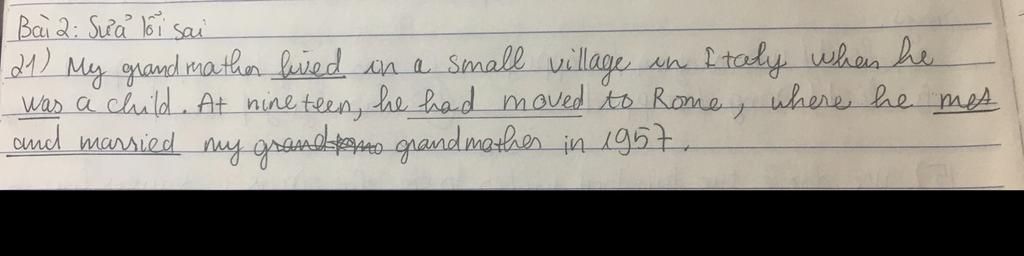 Bài 2: Sửa lỗi sai
21) My grandmother lived in a small village in Italy when he
was a child. At nineteen, he had moved to Rome, where he met
and married my grandmother in 1957.